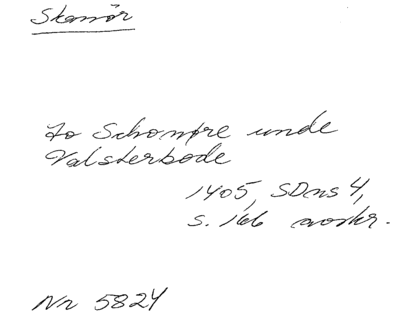 Skanör
to Schonøre unde
Valsterbode
1405, SDns 4,
s. 166 avskr.
Nr 5824